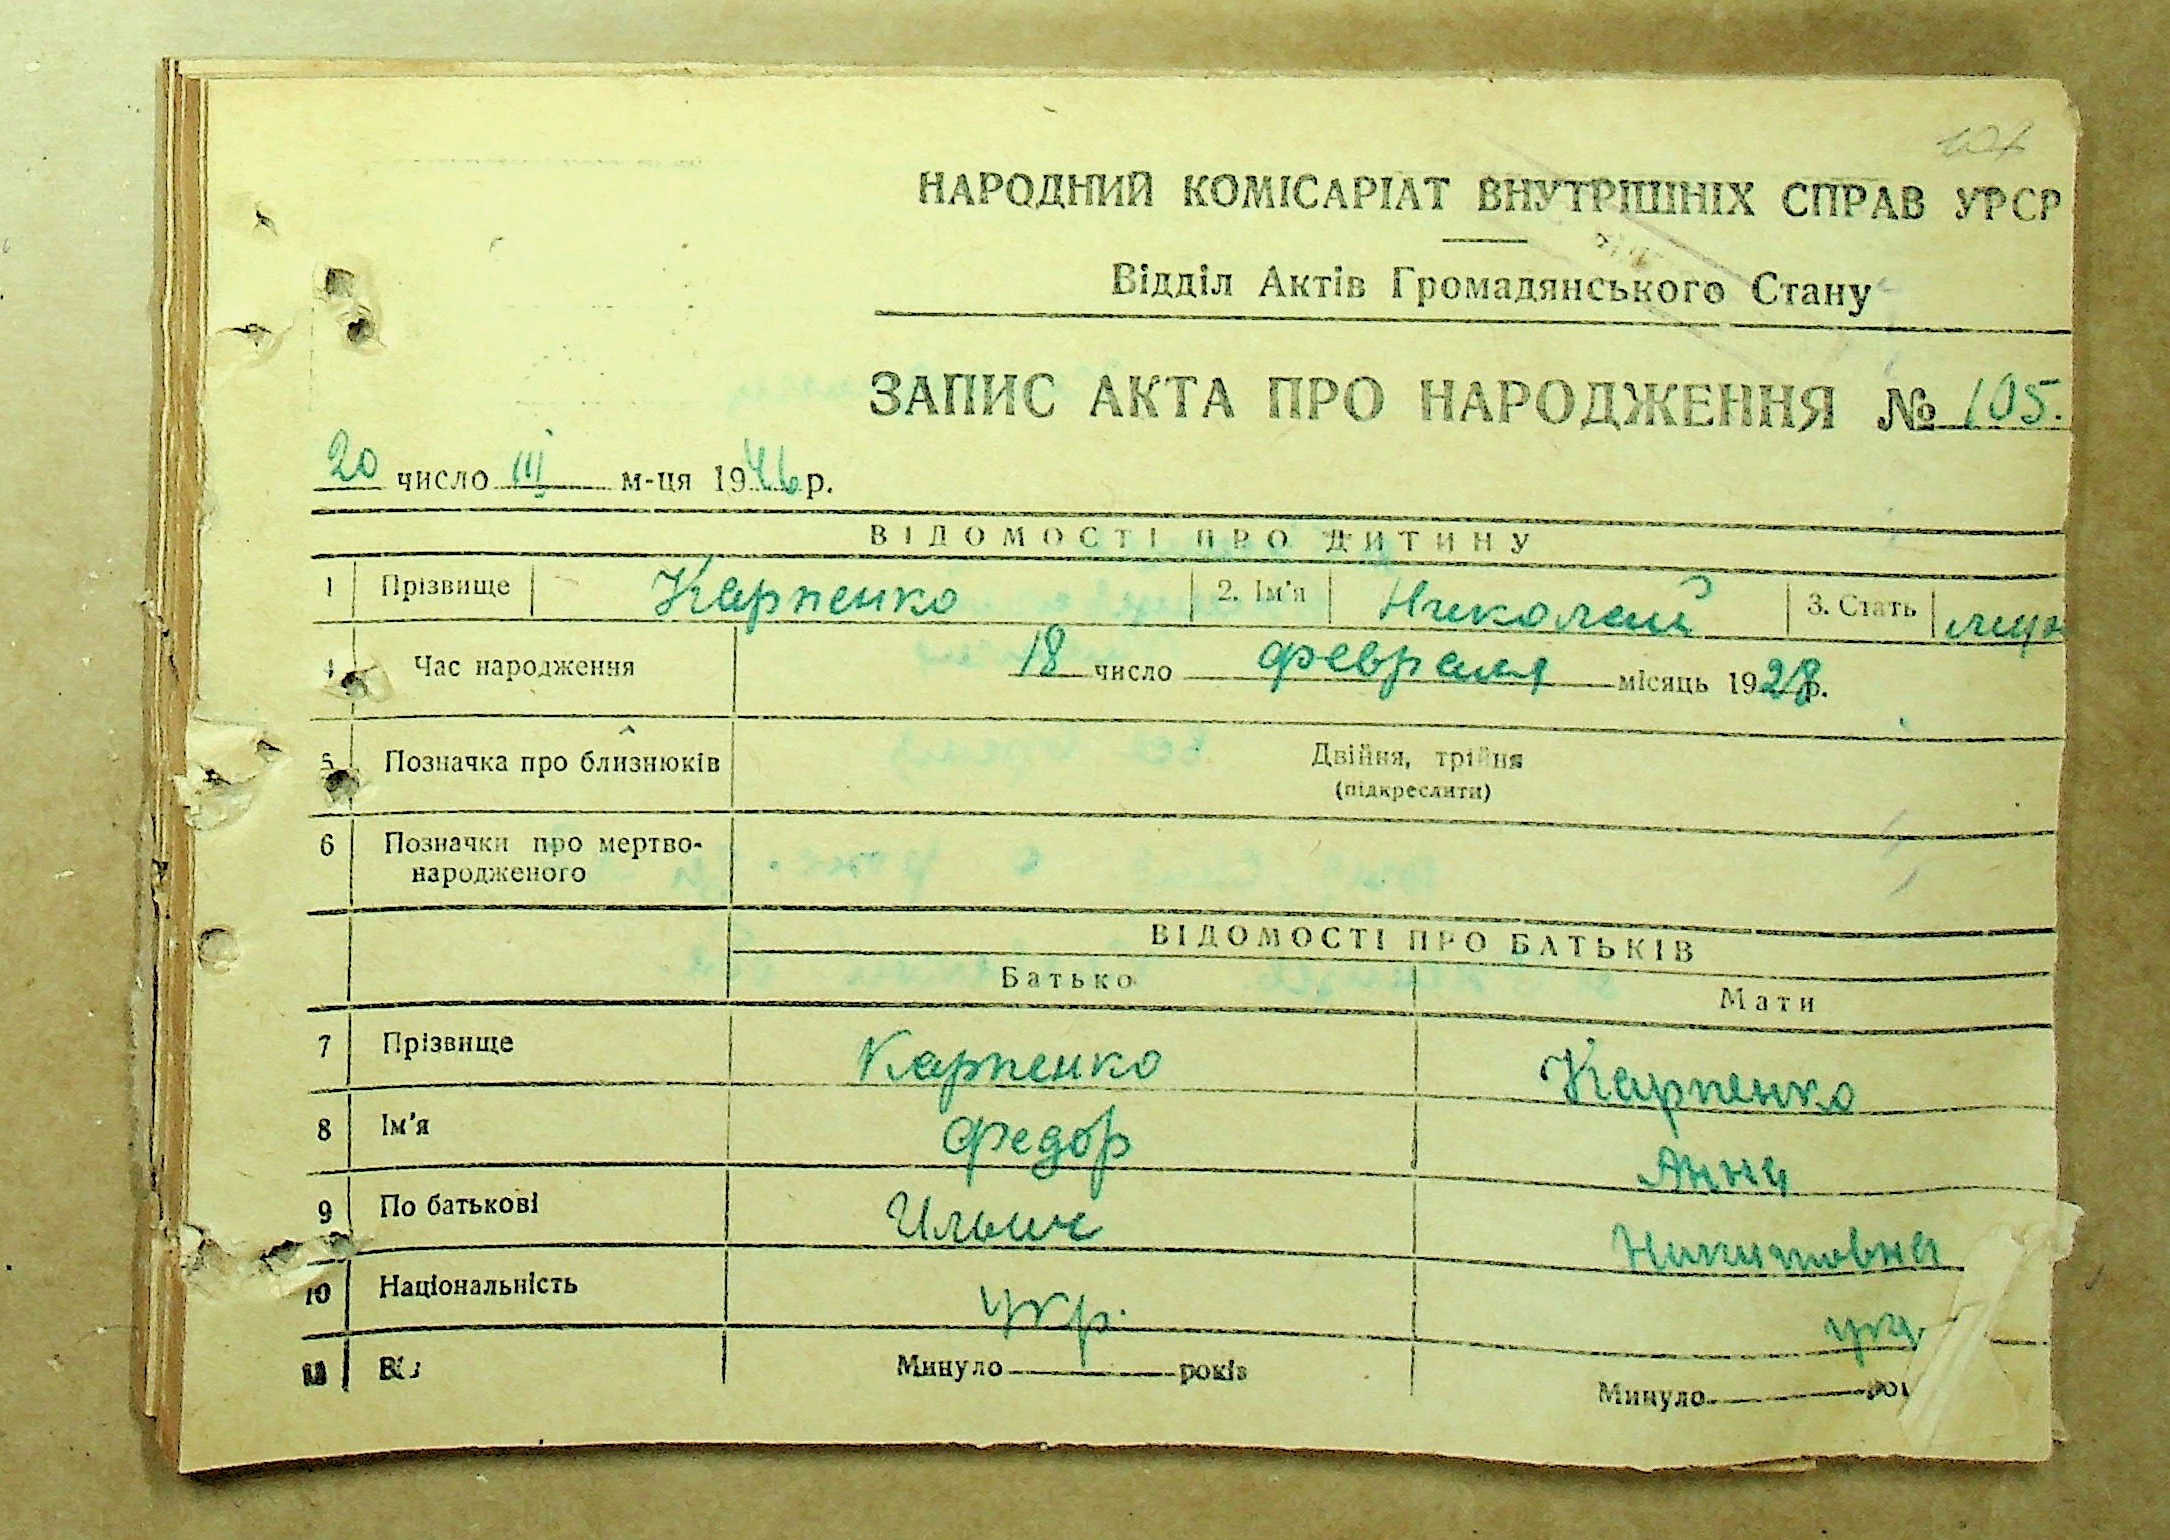 НАРОДНИЙ КОМІСАРІАТ ВНУТРІШНІХ СПРАВ УРСР
Відділ Актів Громадянського Стану
ЗАПИС АКТА ПРО НАРОДЖЕННЯ № 105.
20 число III м-ця 1946 р.
ВІДОМОСТІ ПРО ДИТИНУ
1 Прізвище Карпенко 2. Ім'я Николай 3. Стать
Час народження 18 число февраля місяць 1928 р.
5 Позначка про близнюків Двійня, трійня
(підкреслити)
6 Позначки про мертво-
народженого
ВІДОМОСТІ ПРО БАТЬКІВ
Батько Мати
7 Прізвище Карпенко Карпенко
8 Ім'я Федор Анна
9 По батькові Ильич
10 Національність укр. укр.
Минуло років Минуло